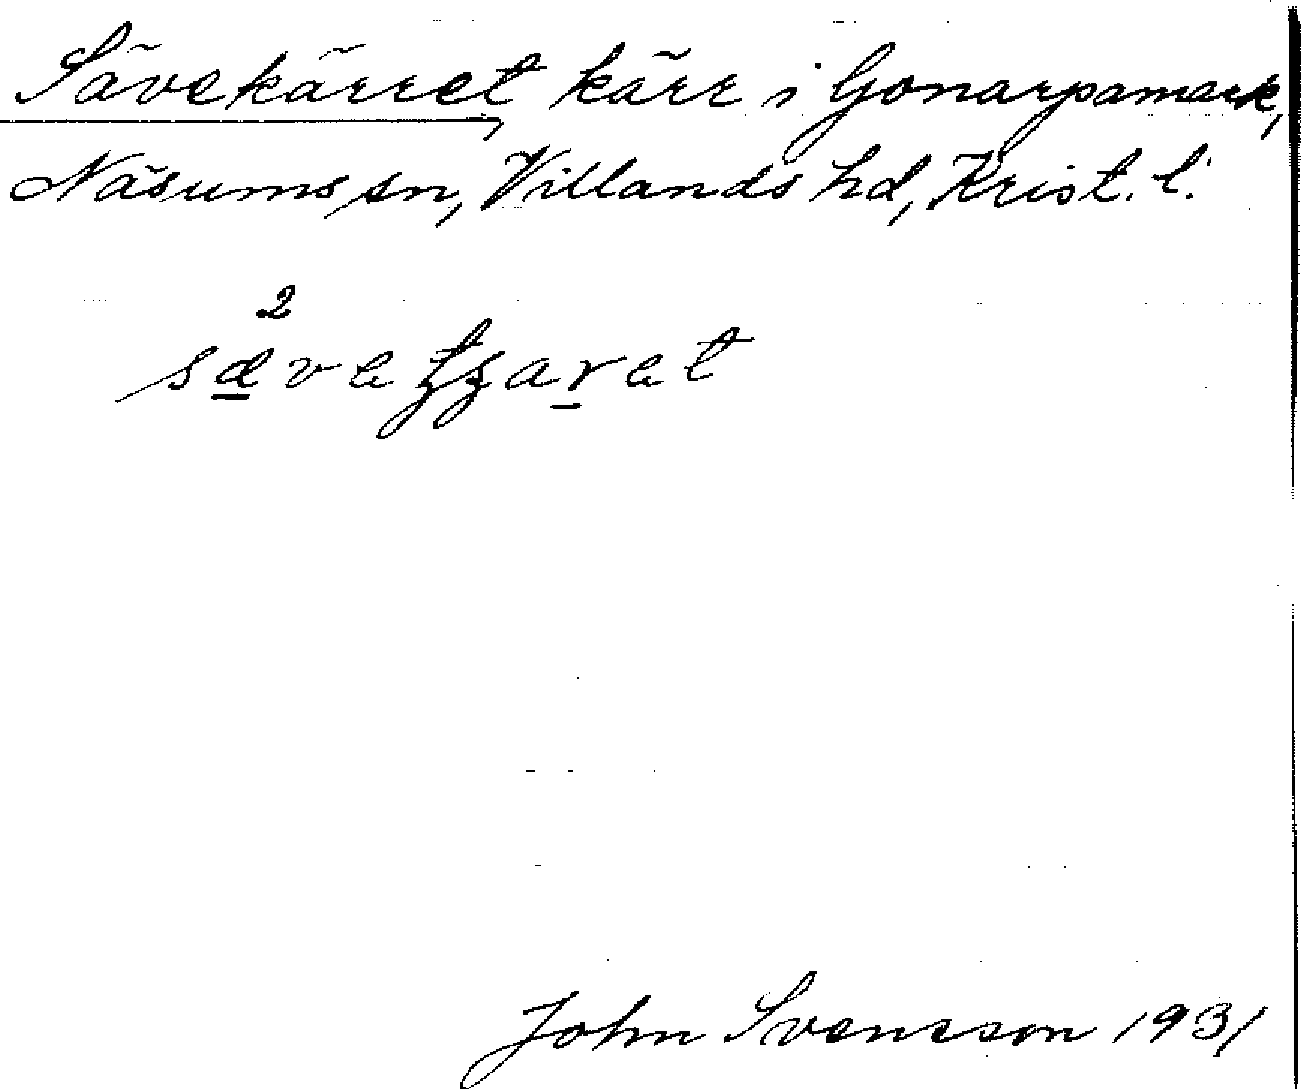 Sävekärret, kärr i Gonarpamark,
Näsums sn, Villands hd, Krist. l.
2
John Svensson 1931